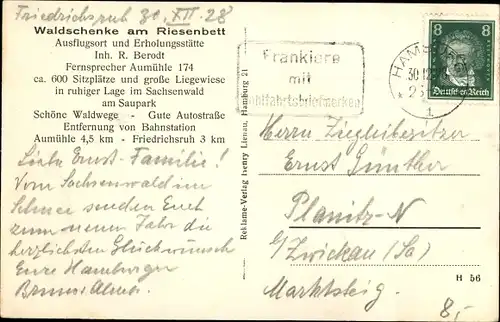 Friedrichsruh 30. XII. 28
Waldschenke am Riesenbett
Ausflugsort und Erholungsstätte
Inh. R. Berodt
Fernsprecher Aumühle 174
ca. 600 Sitzplätze und große Liegewiese
in ruhiger Lage im Sachsenwald
am Saupark
Schöne Waldwege - Gute Autostraße
Entfernung von Bahnstation
Aumühle 4,5 km - Friedrichsruh 3 km
Liebe Ernst-Familie!
Vom Sachsenwald im
Schnee senden Euch
zum neuen Jahr die
herzlichsten Glückwünsch
Eure Hamburger
Reklame-Verlag Iwenry Lienau, Hamburg 21
Frankiere
mit
Wohlfahrtsbriefmarken
HAMBURG
30.12.
1
8 8
Deutsches Reich
Herrn Ziegeleibesitzer
Ernst Günther
Planitz-N
b/Zwickau (Sa)
Marktsteig.
H 56
8,-